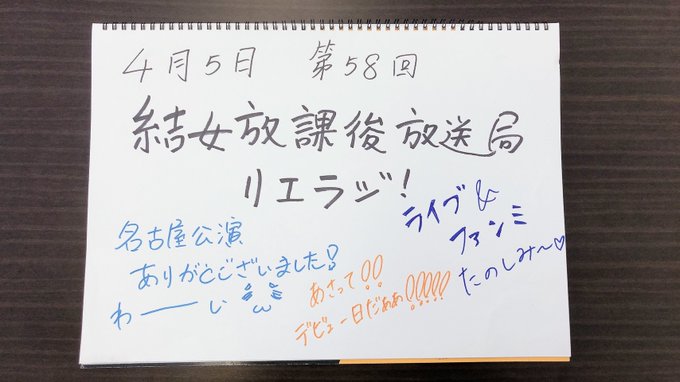 4月5日 第58回
結女放課後放送局
リエラジ!
ライブ&
ファンミ
たのしみ〜♡
名古屋公演
ありがとございました!
わーーい
あさって!!
デビュー日だぁぁ!!!!!